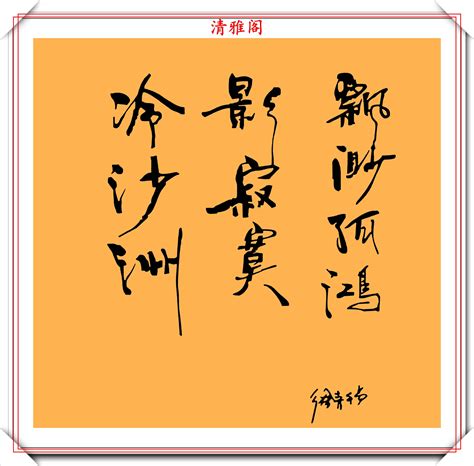 清雅阁
飘渺孤鸿
影寂寞
冷沙洲